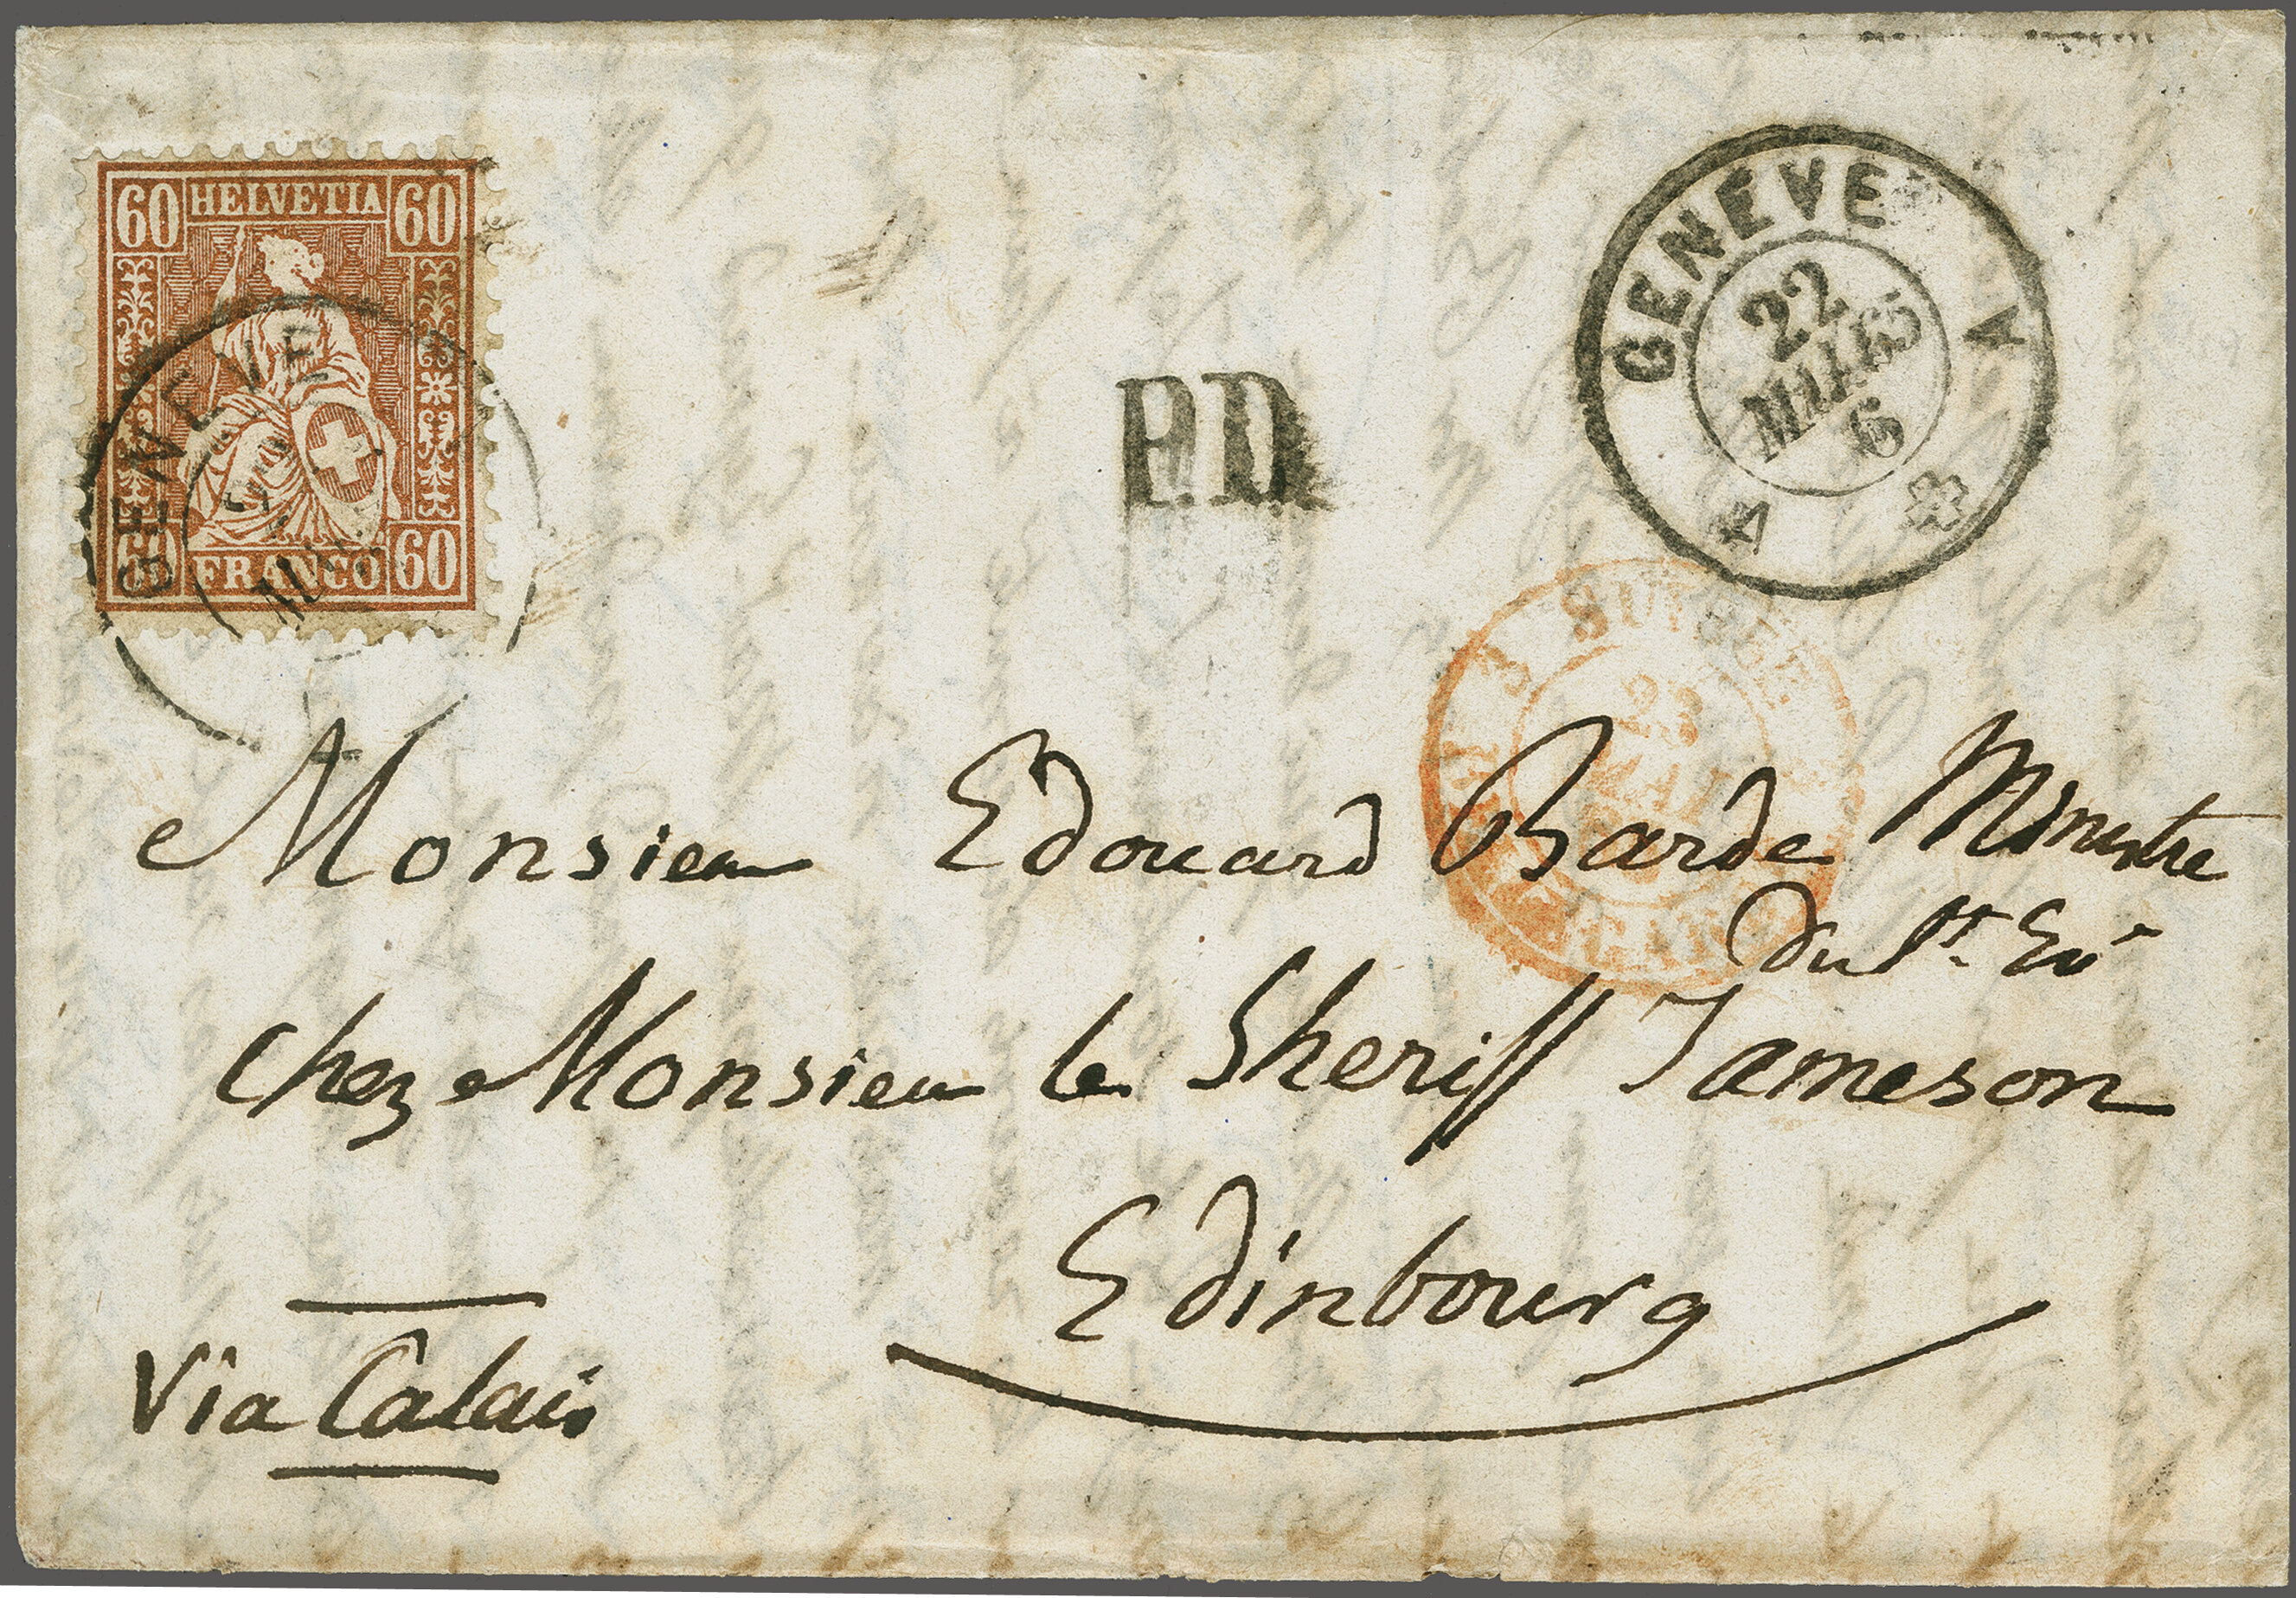 60 HELVETIA 60
GENÈVE
60 FRANCO 60
P.D.
GENÈVE
A
22
MAI 65
6
SUISSE
23
MAI
Monsieur Edouard Barde Ministre
du St. Ev
chez Monsieur le Sheriff Jameson
Edinbourg
Via Calais